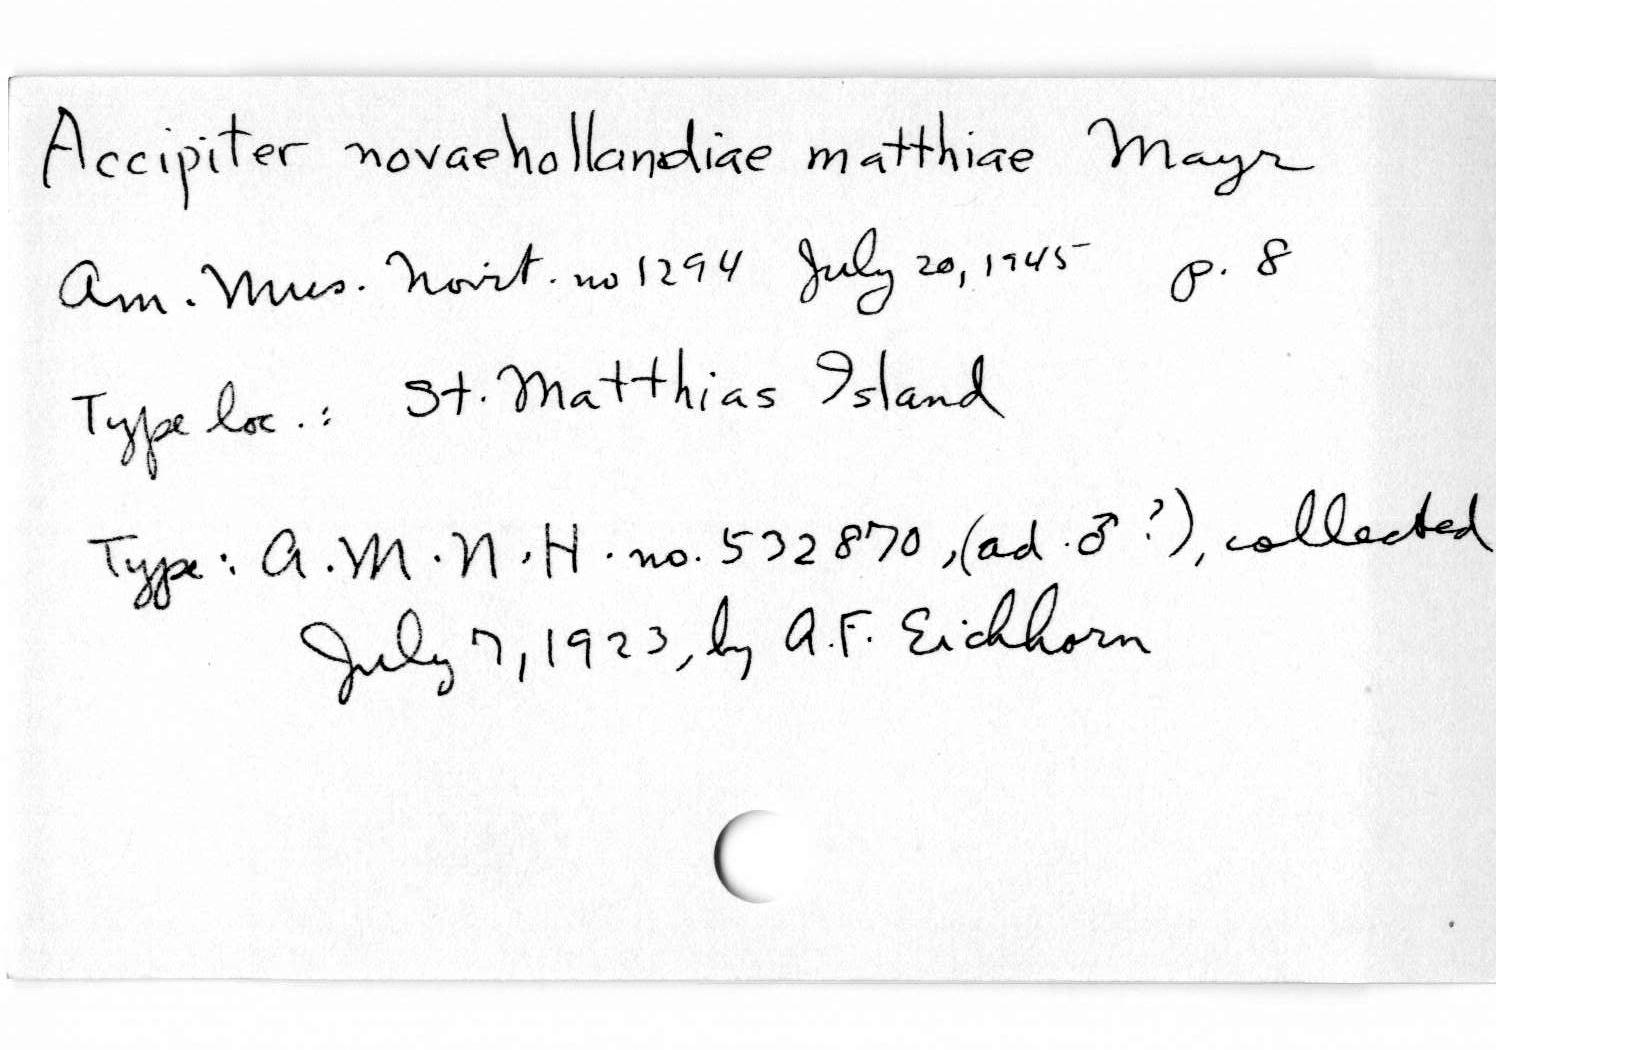 Accipiter novaehollandiae matthiae Mayr
Am. Mus. Novit. no 1294 July 20, 1945 p. 8
Type loc.: St. Matthias Island
Type: A.M.N.H. no. 532870, (ad. ♂?), collected
July 7, 1923, by A.F. Eichhorn